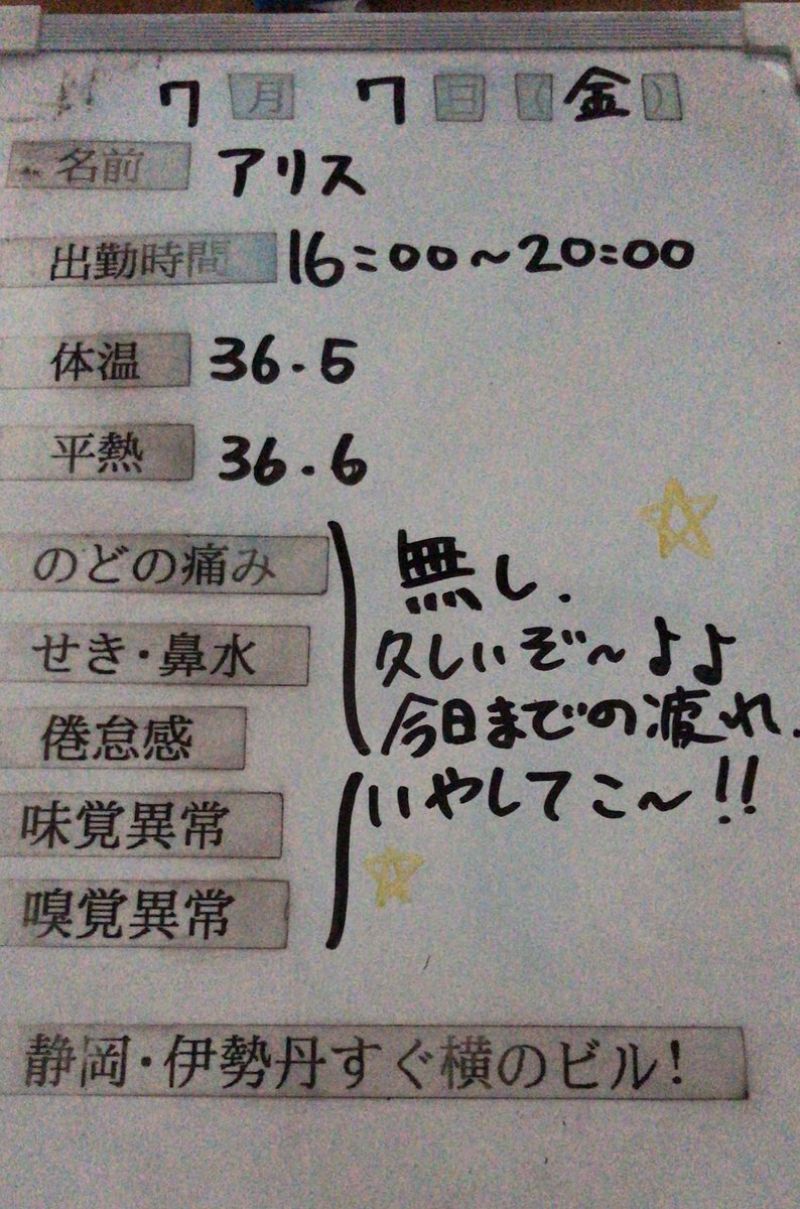 7月 7日(金)
名前 アリス
出勤時間 16:00〜20:00
体温 36.5
平熱 36.6
のどの痛み
せき・鼻水
倦怠感
味覚異常
嗅覚異常
無し.
久しいぞ〜よよ
今日までの疲れ.
いやしてこ〜!!
静岡・伊勢丹すぐ横のビル!